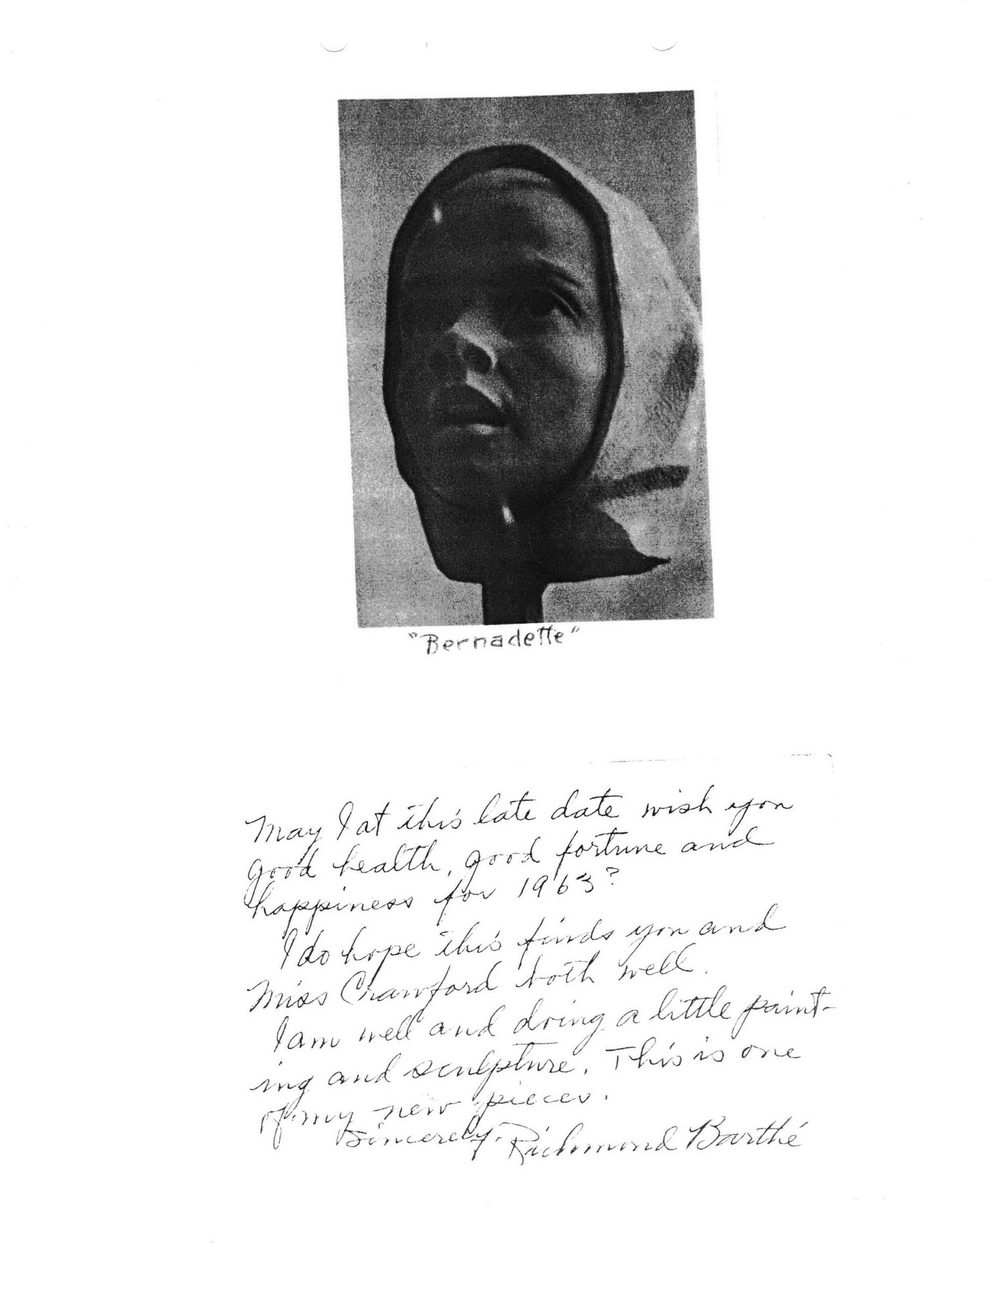 "Bernadette"
May I at this late date wish you
good health, good fortune and
happiness for 1963?
I do hope this finds you and
Miss Crawford both well.
I am well and doing a little paint-
ing and sculpture. This is one
of my new pieces.
Sincerely. Richmond Barthé